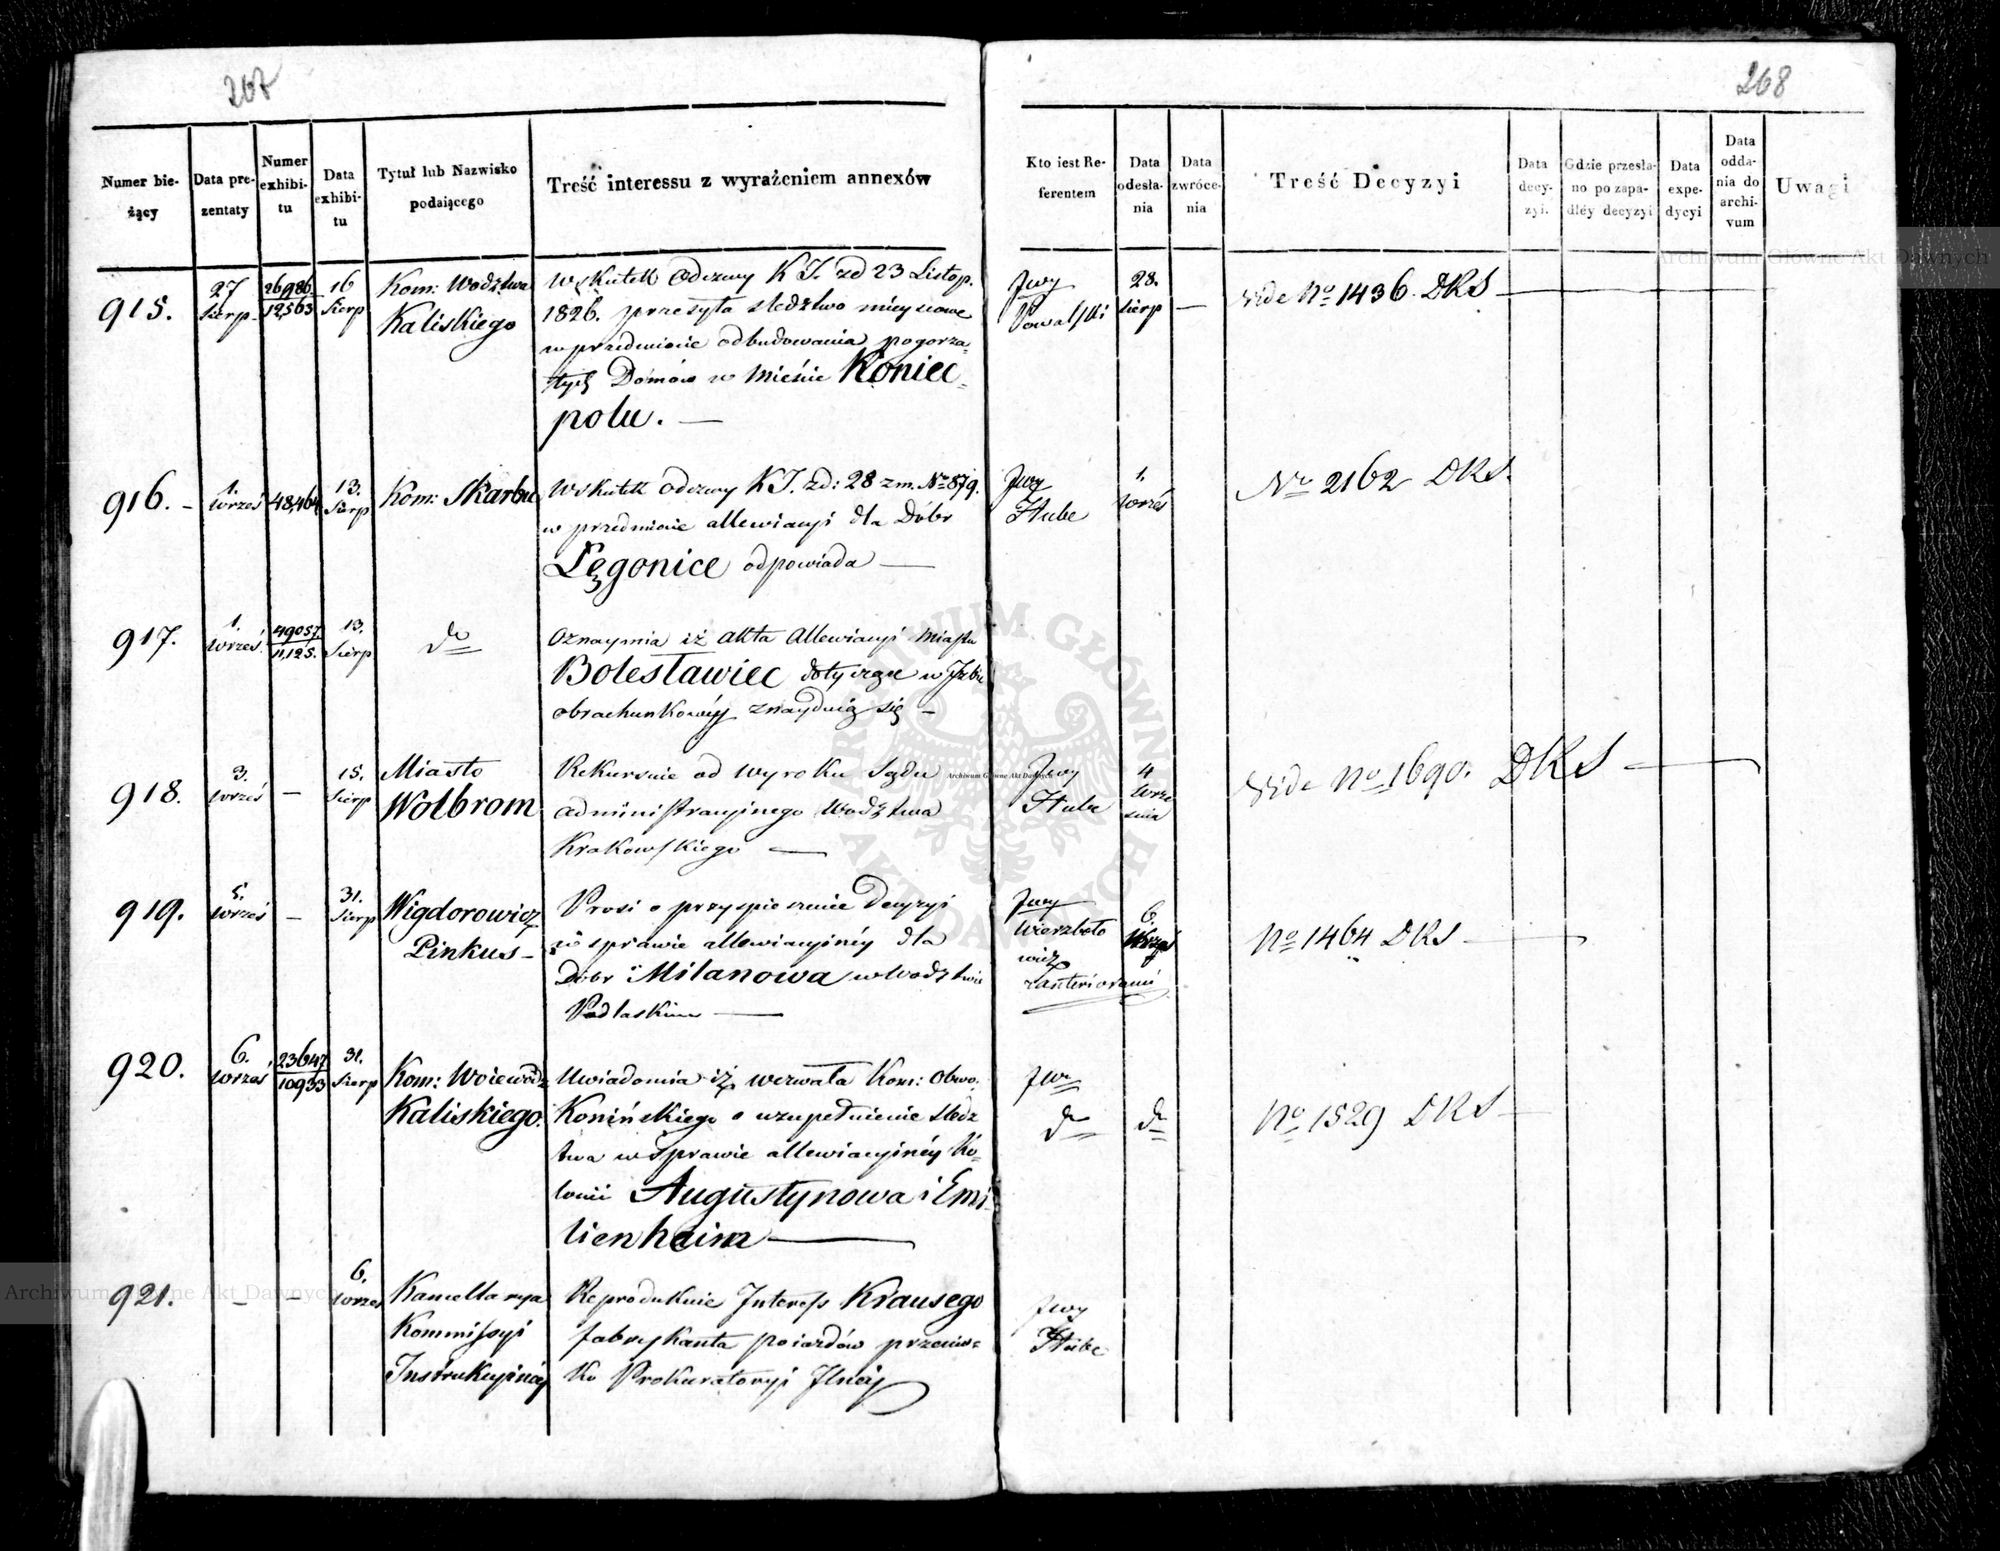 267
268
Numer bie-
żący
Data pre-
zentaty
Numer
exhibi-
tu
Data
exhibi-
tu
Tytuł lub Nazwisko
podaiącego
Treść interessu z wyrażeniem annexów
Kto iest Re-
ferentem
Data
odesła-
nia
Data
zwróce-
nia
Treść Decyzyi
Data
decy-
zyi.
Gdzie przesła-
no po zapa-
dłéy decyzyi
Data
expe-
dycyi
Data
odda-
nia do
archi-
vum
Uwagi
915.
27
Sierp.
26986.
12563
16
Sierp
Kom: Wodztwa
Kaliskiego
W skutek Odezwy K J. zd 23 Listop.
1826. przesyła sledztwo mieyscowe
w przedmiocie odbudowania pogorza-
łych Domów w Mieście Koniec-
polu. —
Jwy
Kowalski
28.
Sierp
—
Vide No 1436. DKS
916. -
1.
Wrześ
48,464
13.
Sierp
Kom: Skarbu
W skutek odezwy K J. zd: 28 z m. No 879.
w przedmiocie allewiacyi dla Dóbr
Lęgonice odpowiada —
Jwy
Hube
1.
Wrześ
No 2162 DKS.
917.
1.
Wrześ.
49057.
11,125.
13.
Sierp
do
Oznaymia iż akta Allewiacyi Miasta
Bolesławiec dotyczące w Izbie
obrachunkowéy znayduią się -
918.
3.
Wrześ
—
15.
Sierp
Miasto
Wolbrom
Rekursuie od wyroku Sądu
administracyinego Wodztwa
Krakowskiego —
Jwy
Hube
4
Wrze
śnia
Vide No 1690. DKS —
919.
5.
Wrześ
—
31.
Sierp
Wigdorowicz
Pinkus -
Prosi o przyspieszenie Decyzyi
w sprawie allewiacyinéy dla
Dóbr Milanowa w Wodztwie
Podlaskim —
Jwy
Wierzboło
wicz
6.
Wrześ
No 1464 DKS —
920.
6.
Wrześ
23647
10933
31.
Sierp
Kom: Woiewodz
Kaliskiego.
Uwiadomia iż wezwała Kom: Obwo.
Konińskiego o uzupełnienie sledz
twa w sprawie allewiacyinéy Ko-
lonii Augustynowa i Emi-
lienheim —
JW
do
do
No 1529 DKS —
921.
-
-
6.
Wrześ
Kancellarya
Kommissyi
Instrukcyinéy
Reprodukuie Interess Krausego
fabrykanta poiazdów przeciw-
ko Prokuratoryi Jlnéy
Jwy
Hube
Archiwum Główne Akt Dawnych
Archiwum Główne Akt Dawnych
Archiwum Główne Akt Dawnych
ARCHIWUM GŁÓWNE AKT DAWNYCH